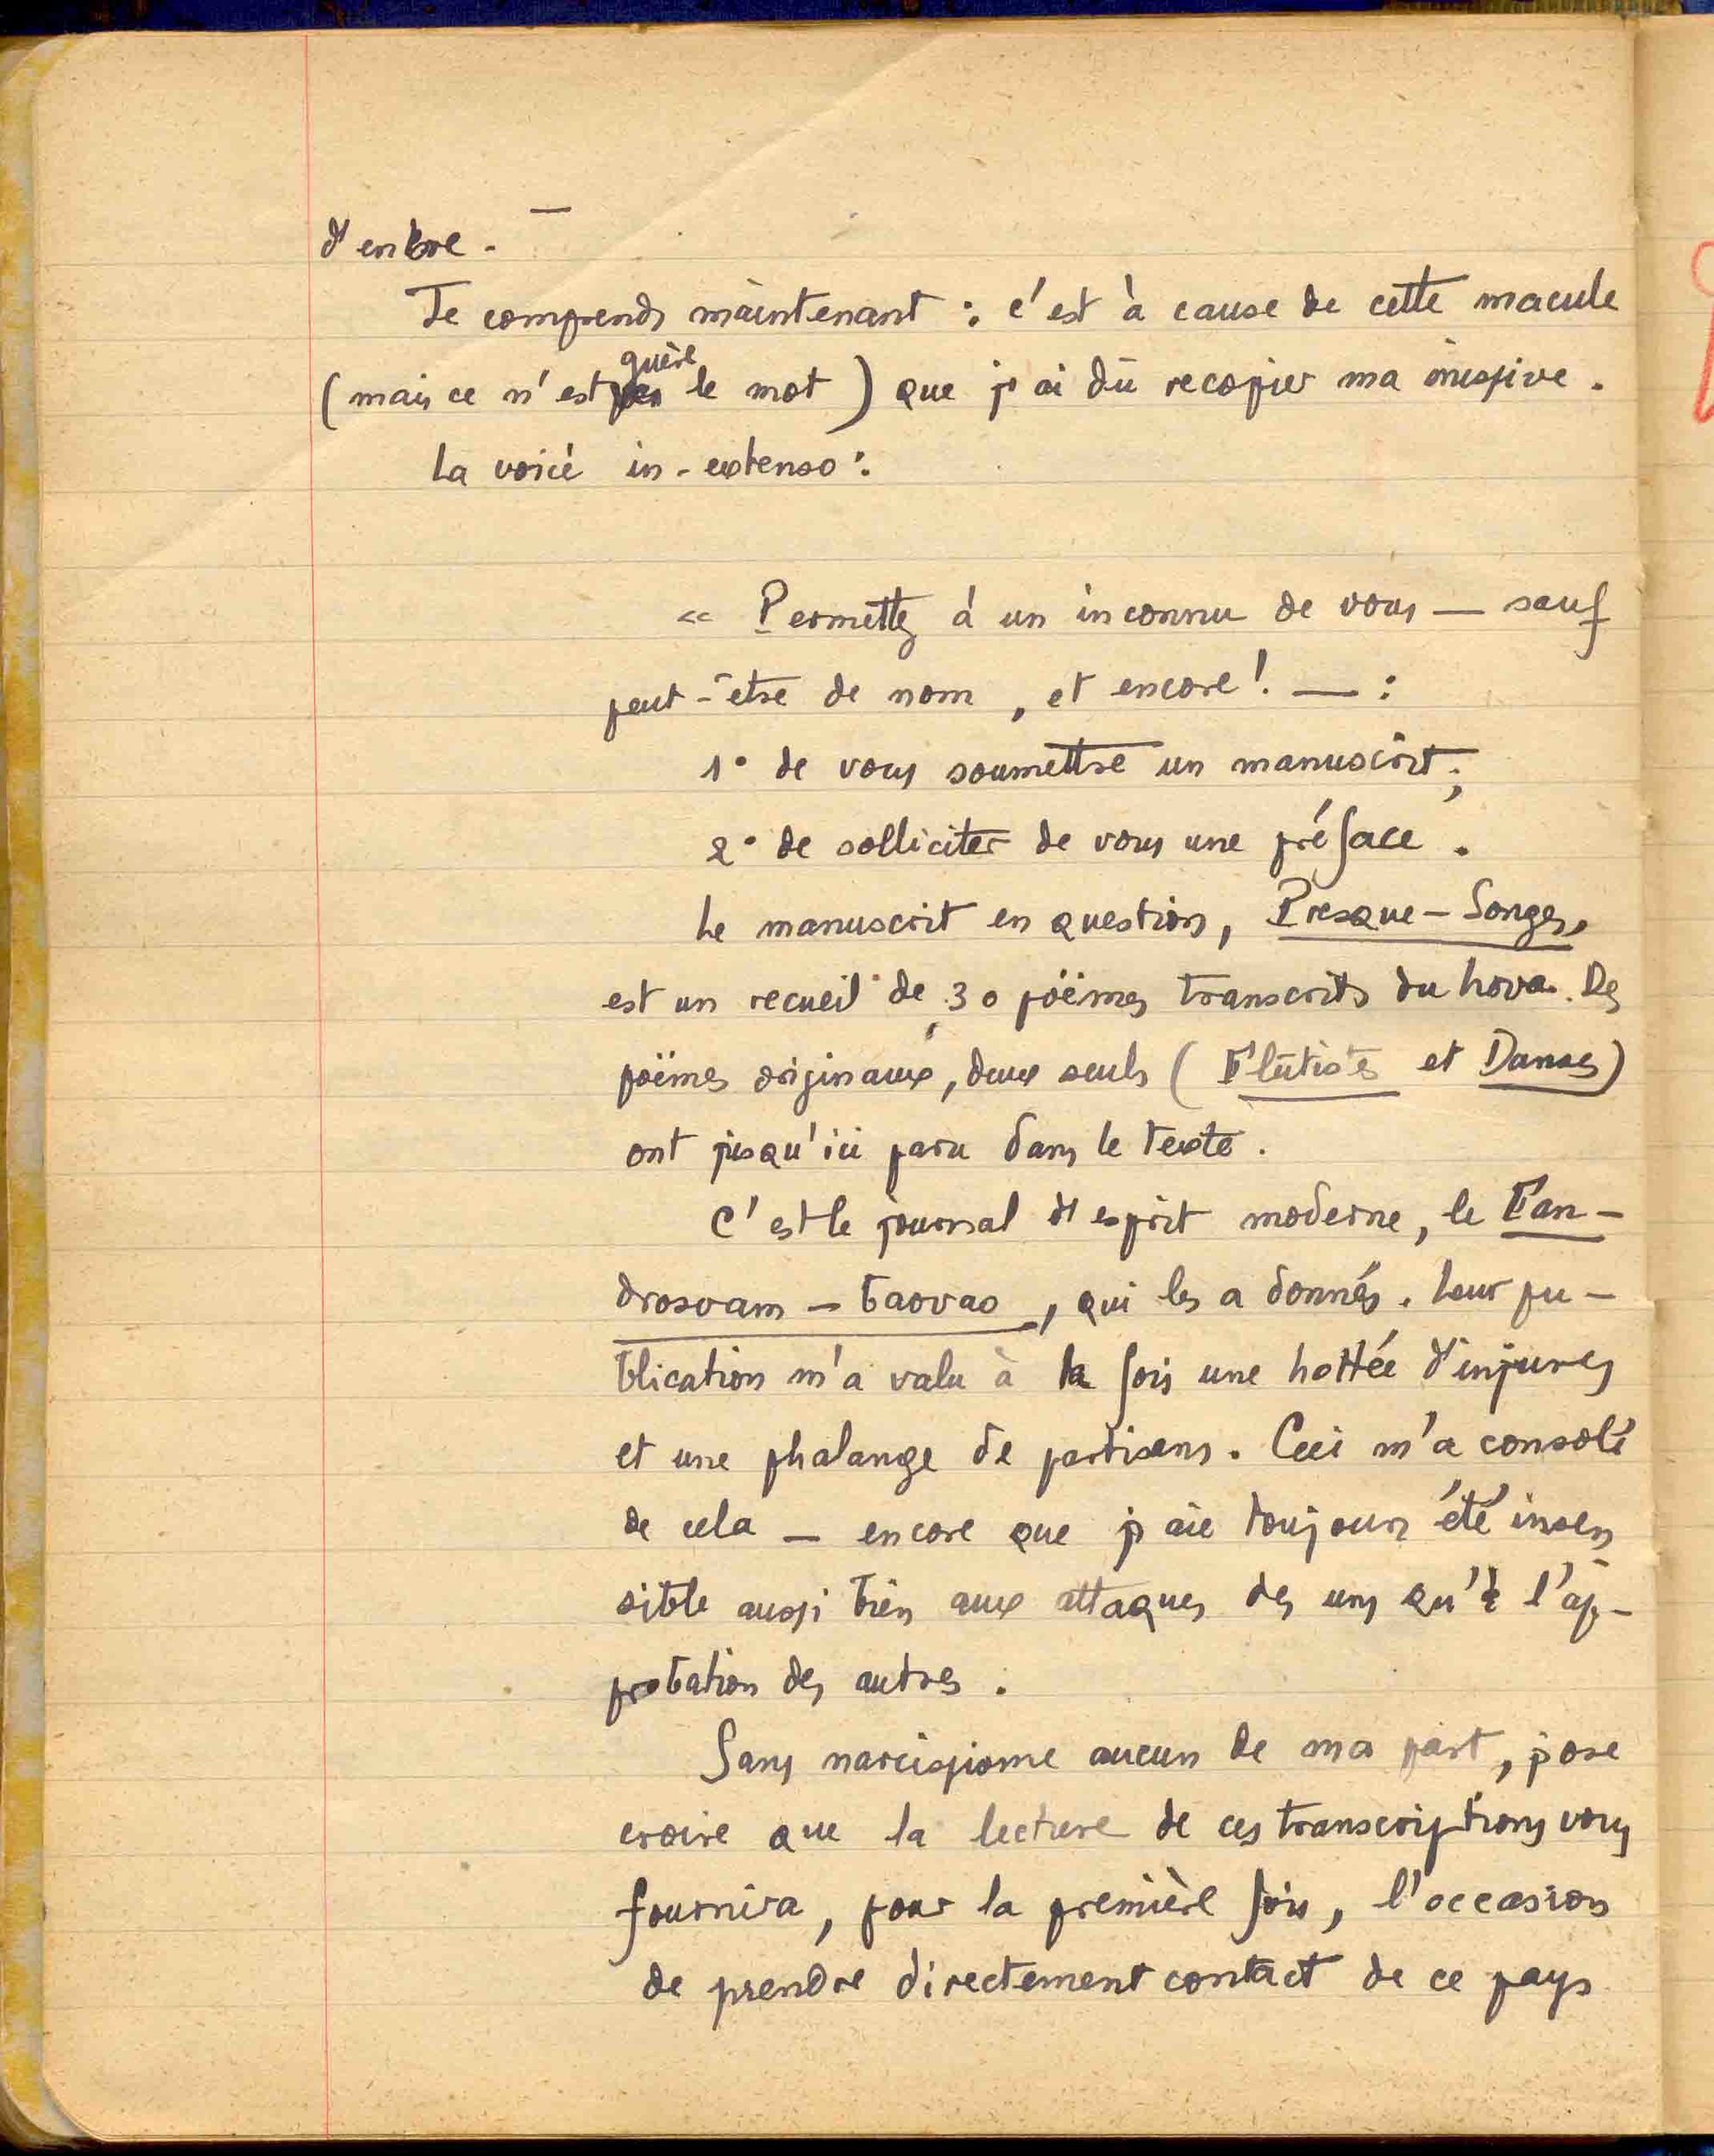 d'encre. —
Je comprends maintenant : c'est à cause de cette macule
(mais ce n'est guère le mot) que j'ai dû recopier ma missive.
La voici in-extenso :
« Permettez à un inconnu de vous — sauf
peut-être de nom, et encore ! — :
1° de vous soumettre un manuscrit ;
2° de solliciter de vous une préface.
Le manuscrit en question, Presque-Songes,
est un recueil de 30 poëmes transcrits du hova. Des
poëmes originaux, deux seuls (Flûtistes et Danses)
ont jusqu'ici paru dans le texte.
C'est le journal d'esprit moderne, le Fan-
drosoam-baovao, qui les a donnés. Leur pu-
blication m'a valu à la fois une hottée d'injures
et une phalange de partisans. Ceci m'a consolé
de cela — encore que j'aie toujours été insen
sible aussi bien aux attaques des uns qu'à l'ap-
probation des autres.
Sans narcissisme aucun de ma part, j'ose
croire que la lecture de ces transcriptions vous
fournira, pour la première fois, l'occasion
de prendre directement contact de ce pays